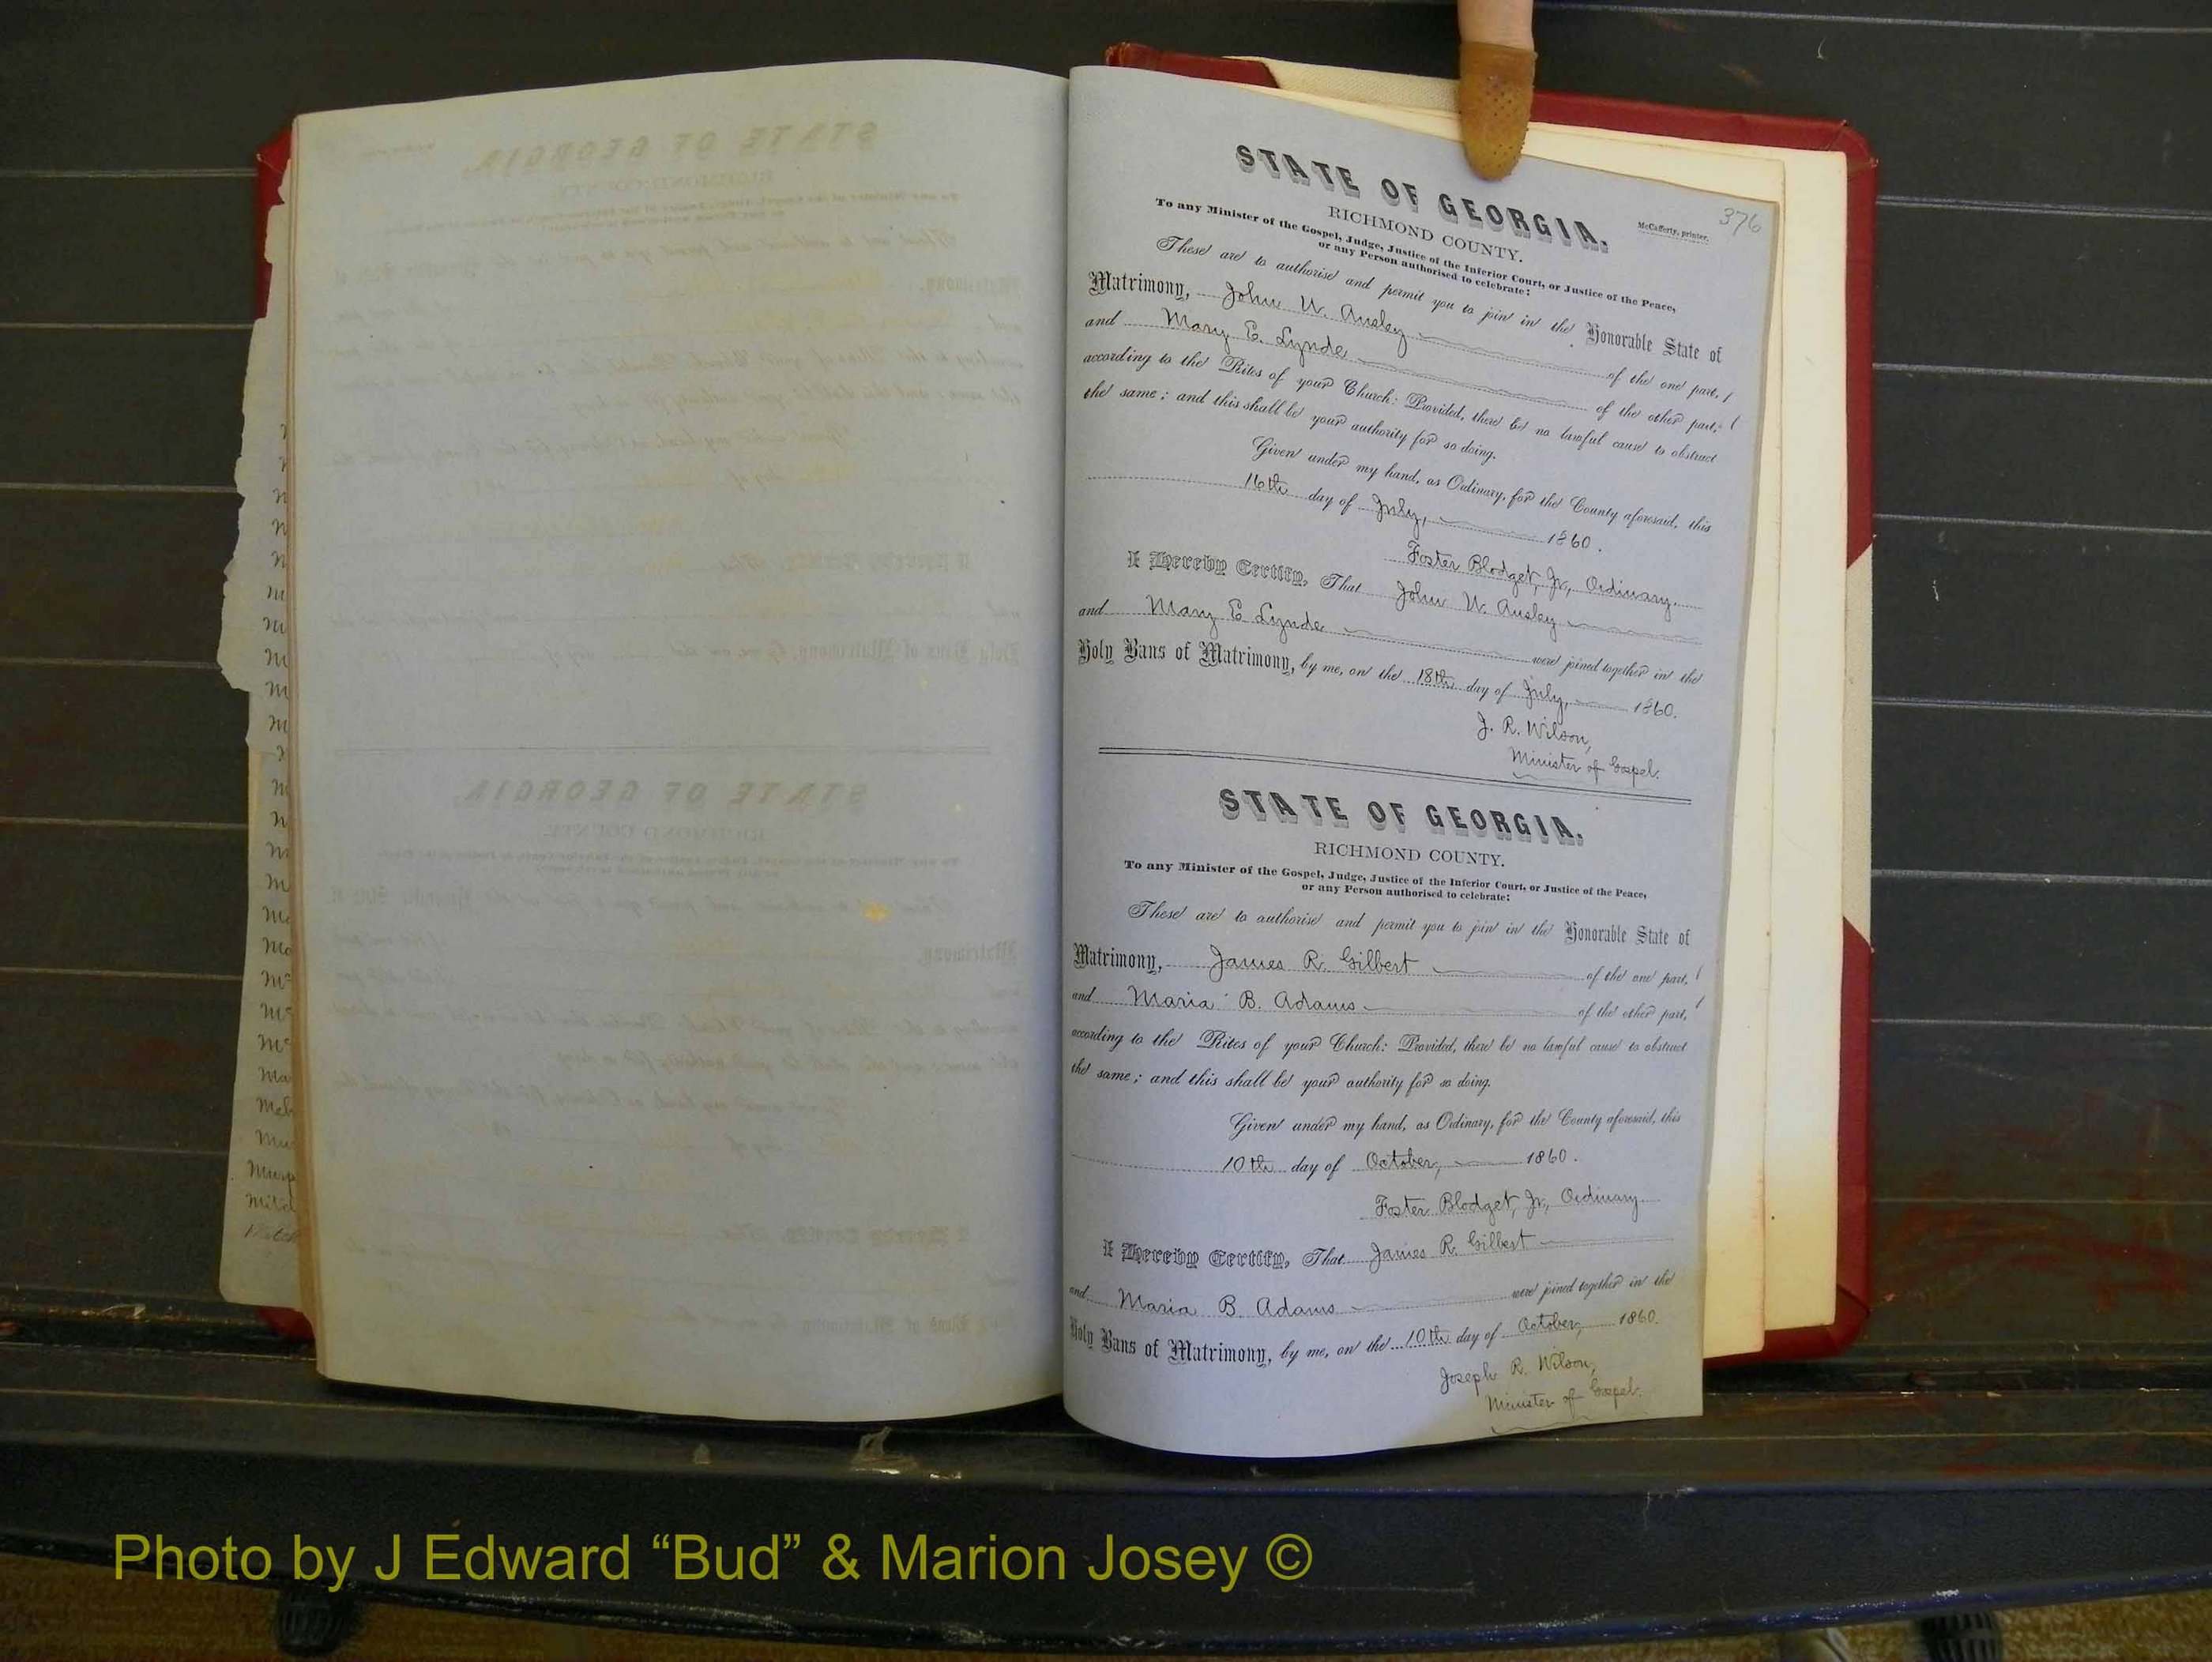 376
STATE OF GEORGIA.
McCafferty, printer.
RICHMOND COUNTY.
To any Minister of the Gospel, Judge, Justice of the Inferior Court, or Justice of the Peace,
or any Person authorised to celebrate:
These are to authorise and permit you to join in the Honorable State of
Matrimony, John W. Ansley of the one part,
and Mary E. Lynde of the other part,
according to the Rites of your Church: Provided, there be no lawful cause to obstruct
the same; and this shall be your authority for so doing.
Given under my hand, as Ordinary, for the County aforesaid, this
16th day of July, 1860.
Foster Blodget, Jr., Ordinary.
I Hereby Certify, That John W. Ansley
and Mary E. Lynde were joined together in the
Holy Bans of Matrimony, by me, on the 18th day of July, 1860.
J. R. Wilson,
Minister of Gospel.
STATE OF GEORGIA.
RICHMOND COUNTY.
To any Minister of the Gospel, Judge, Justice of the Inferior Court, or Justice of the Peace,
or any Person authorised to celebrate:
These are to authorise and permit you to join in the Honorable State of
Matrimony, James R. Gilbert of the one part,
and Maria B. Adams of the other part,
according to the Rites of your Church: Provided, there be no lawful cause to obstruct
the same; and this shall be your authority for so doing.
Given under my hand, as Ordinary, for the County aforesaid, this
10th day of October, 1860.
Foster Blodget, Jr., Ordinary.
I Hereby Certify, That James R. Gilbert
and Maria B. Adams were joined together in the
Holy Bans of Matrimony, by me, on the 10th day of October, 1860.
Joseph R. Wilson,
Minister of Gospel.
Photo by J Edward “Bud” & Marion Josey ©